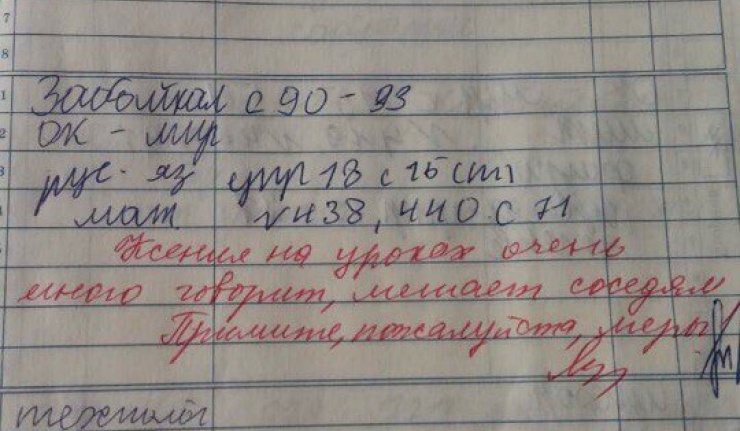 7
8
1 Забайкал с 90 - 93
2 ок - мир
3 рус. яз упр 18 с 15 (т)
мат №438, 440 с 71
Ксения на уроках очень
много говорит, мешает соседям
Примите, пожалуйста, меры
технолог